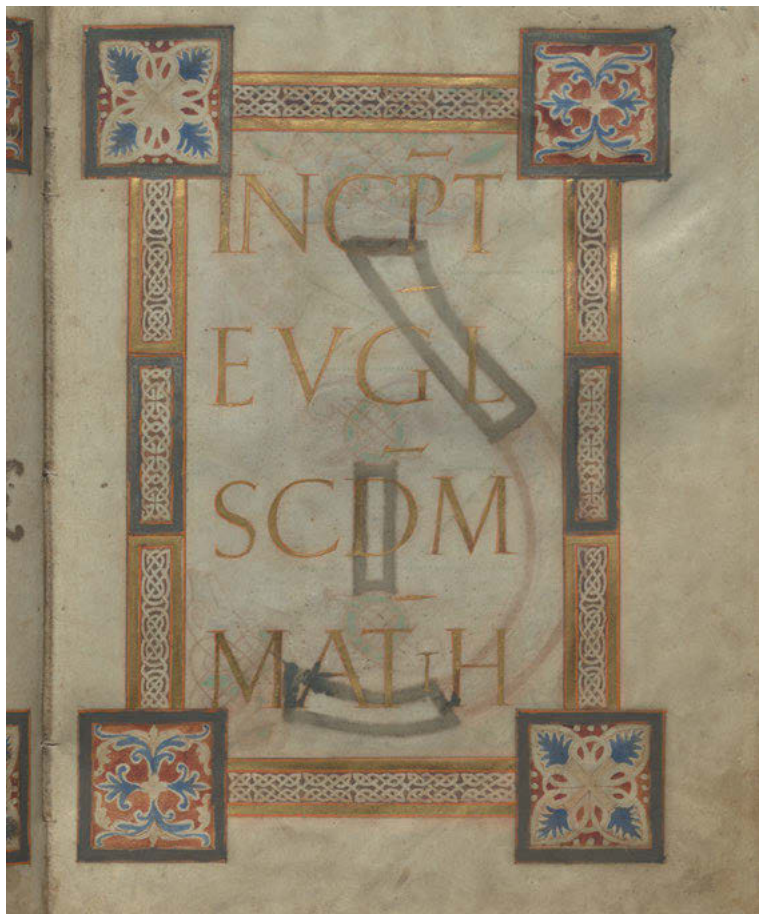 INCP̄T
EVḠL
SCD̄M
MAT̄ɢH